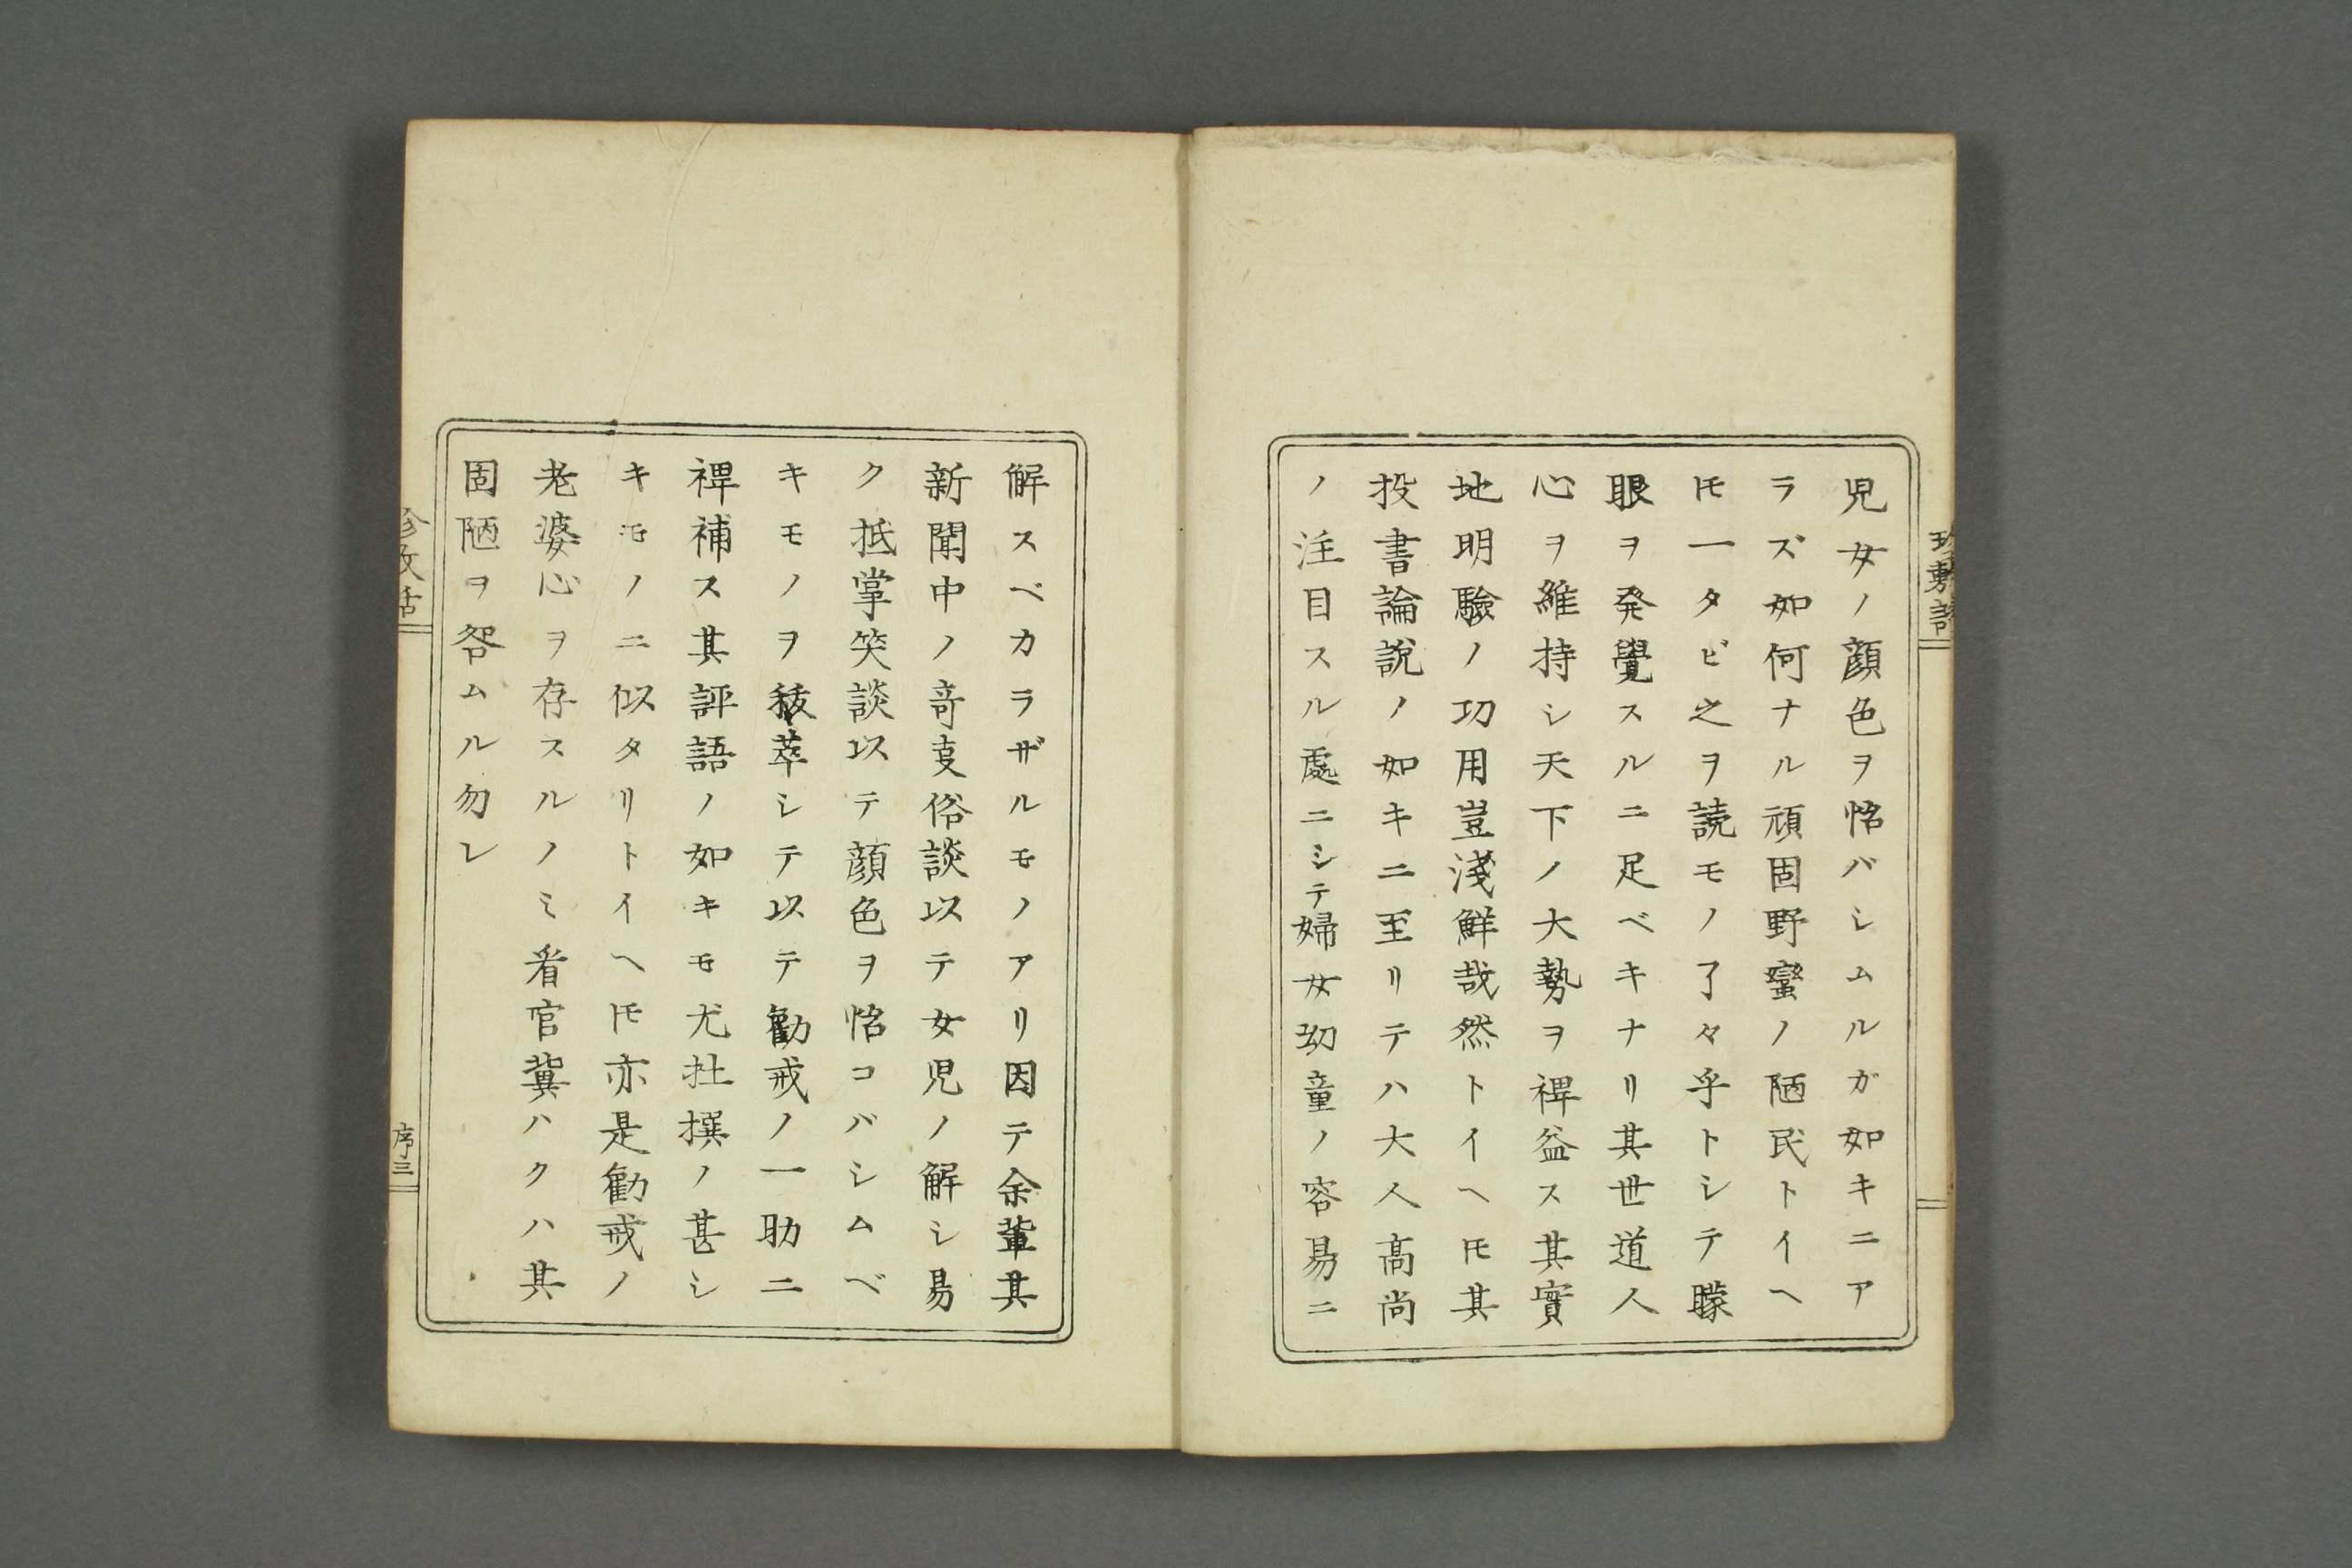 児女ノ顔色ヲ恪バシムルガ如キニア
ラズ如何ナル頑固野蠻ノ陋民トイヘ
𪜈一タビ之ヲ読モノ了々乎トシテ矇
眼ヲ発覺スルニ足ベキナリ其世道人
心ヲ維持シ天下ノ大勢ヲ裨益ス其實
地明驗ノ功用豈淺鮮哉然トイヘ𪜈其
投書論説ノ如キニ至リテハ大人高尚
ノ注目スル處ニシテ婦女幼童ノ容易ニ
解スベカラザルモノアリ因テ余輩其
新聞中ノ竒㕝俗談以テ女児ノ解シ易
ク抵掌笑談以テ顔色ヲ恪コバシムベ
キモノヲ抜萃シテ以テ勸戒ノ一助ニ
裨補ス其評語ノ如キモ尤杜撰ノ甚シ
キモノニ似タリトイヘ𪜈亦是勸戒ノ
老婆心ヲ存スルノミ看官冀ハクハ其
固陋ヲ咎ムル勿レ
序三